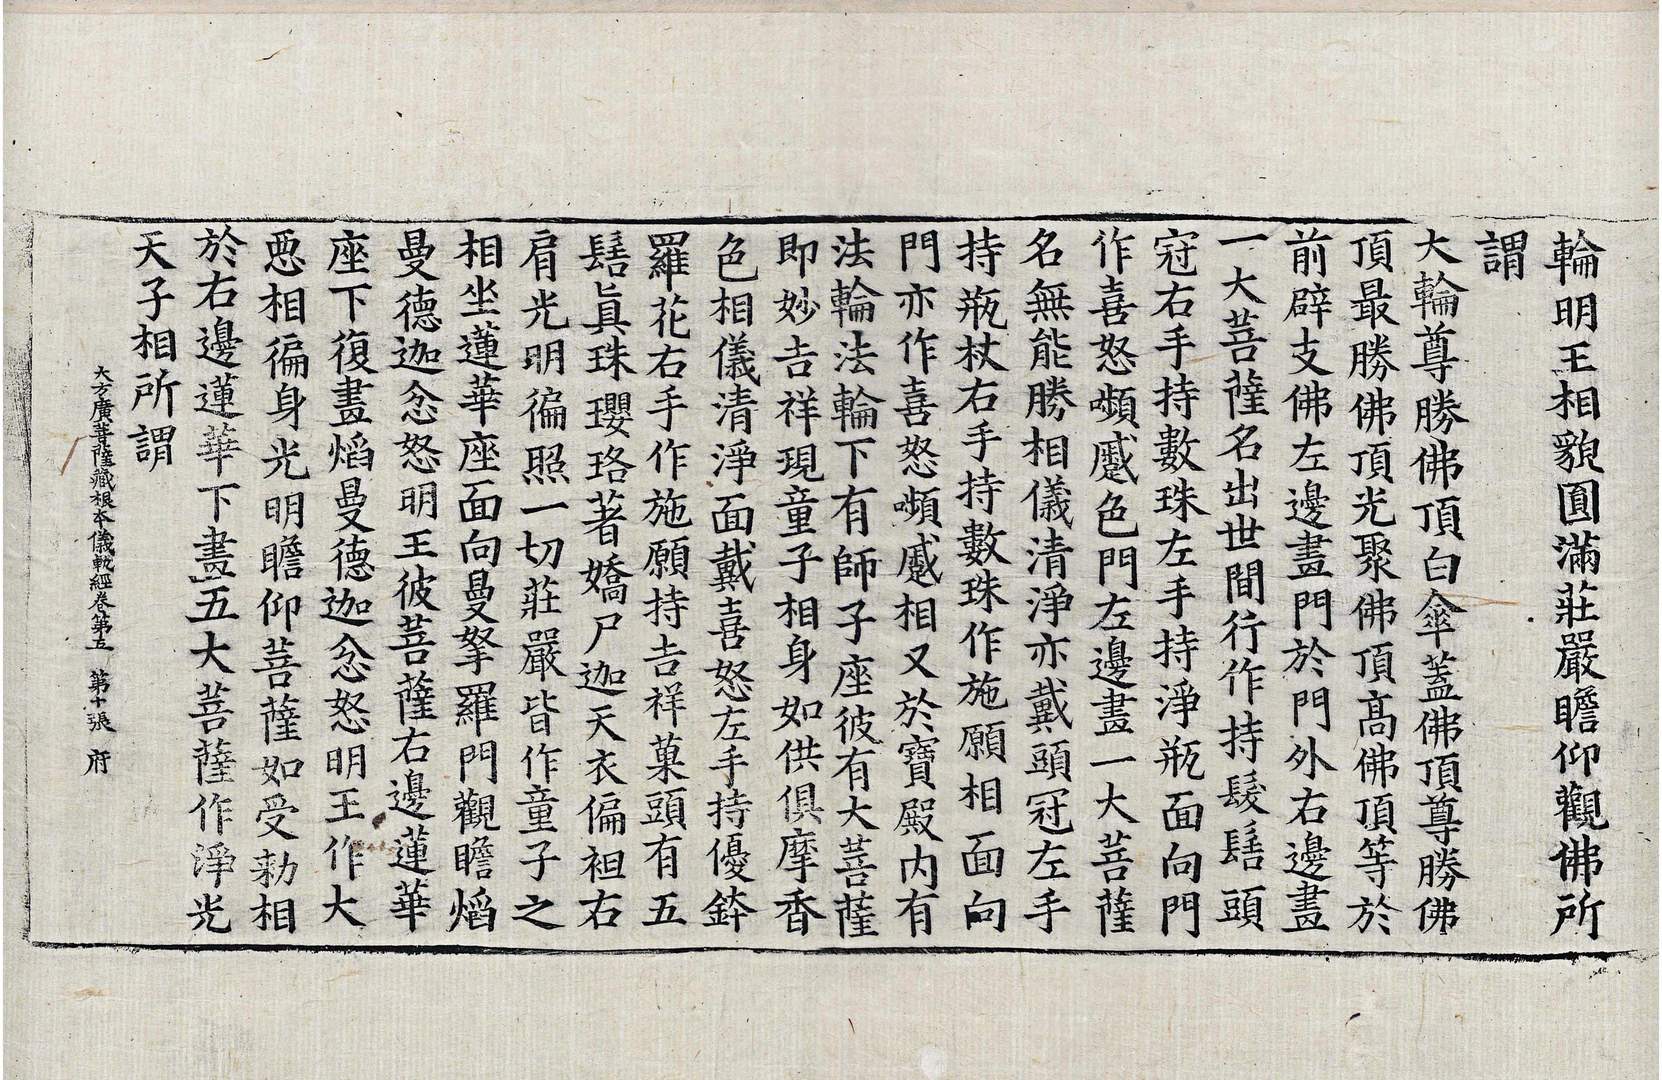 輪明王相貌圓滿莊嚴瞻仰觀佛所
謂
大輪尊勝佛頂白傘蓋佛頂尊勝佛
頂最勝佛頂光聚佛頂高佛頂等於
前辟支佛左邊畫門於門外右邊畫
一大菩薩名出世間行作持髮髻頭
冠右手持數珠左手持淨瓶面向門
作喜怒嚬蹙色門左邊畫一大菩薩
名無能勝相儀清淨亦戴頭冠左手
持瓶杖右手持數珠作施願相面向
門亦作喜怒嚬蹙相又於寶殿內有
法輪法輪下有師子座彼有大菩薩
即妙吉祥現童子相身如供俱摩香
色相儀清淨面戴喜怒左手持優鉢
羅花右手作施願持吉祥菓頭有五
髻眞珠瓔珞著嬌尸迦天衣偏袒右
肩光明徧照一切莊嚴皆作童子之
相坐蓮華座面向曼拏羅門觀瞻焰
曼德迦忿怒明王彼菩薩右邊蓮華
座下復畫焰曼德迦忿怒明王作大
惡相徧身光明瞻仰菩薩如受勑相
於右邊蓮華下畫五大菩薩作淨光
天子相所謂
大方廣菩薩藏根本儀軌經卷第五 第十張 府